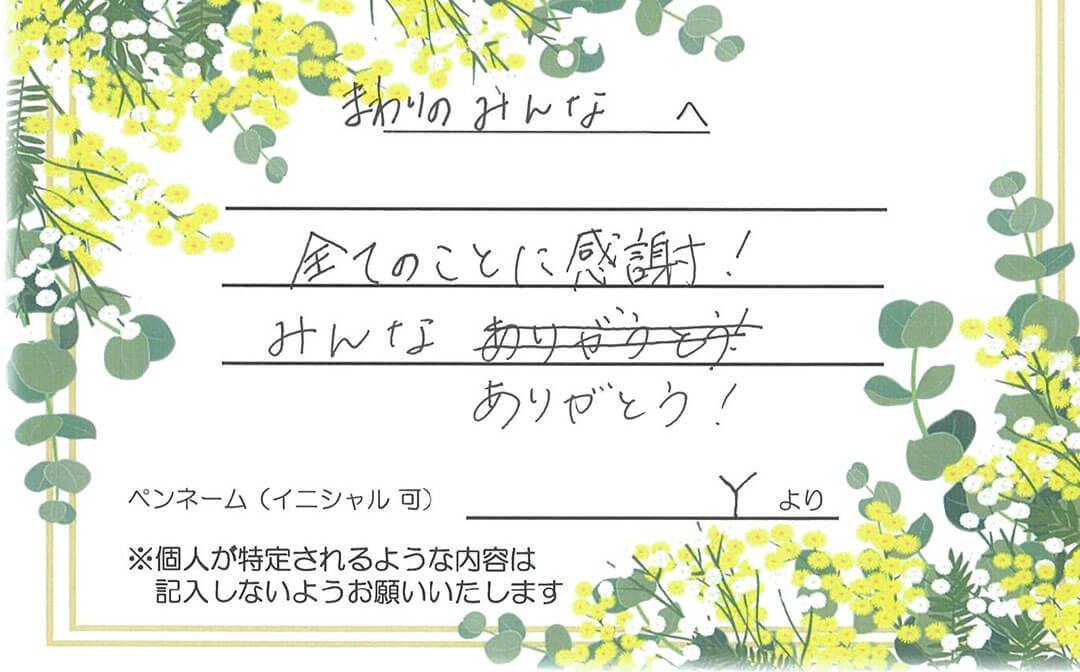 まわりのみんな へ
全てのことに感謝!
みんな ありがうとう!
ありがとう!
ペンネーム(イニシャル 可) Y より
※個人が特定されるような内容は
記入しないようお願いいたします